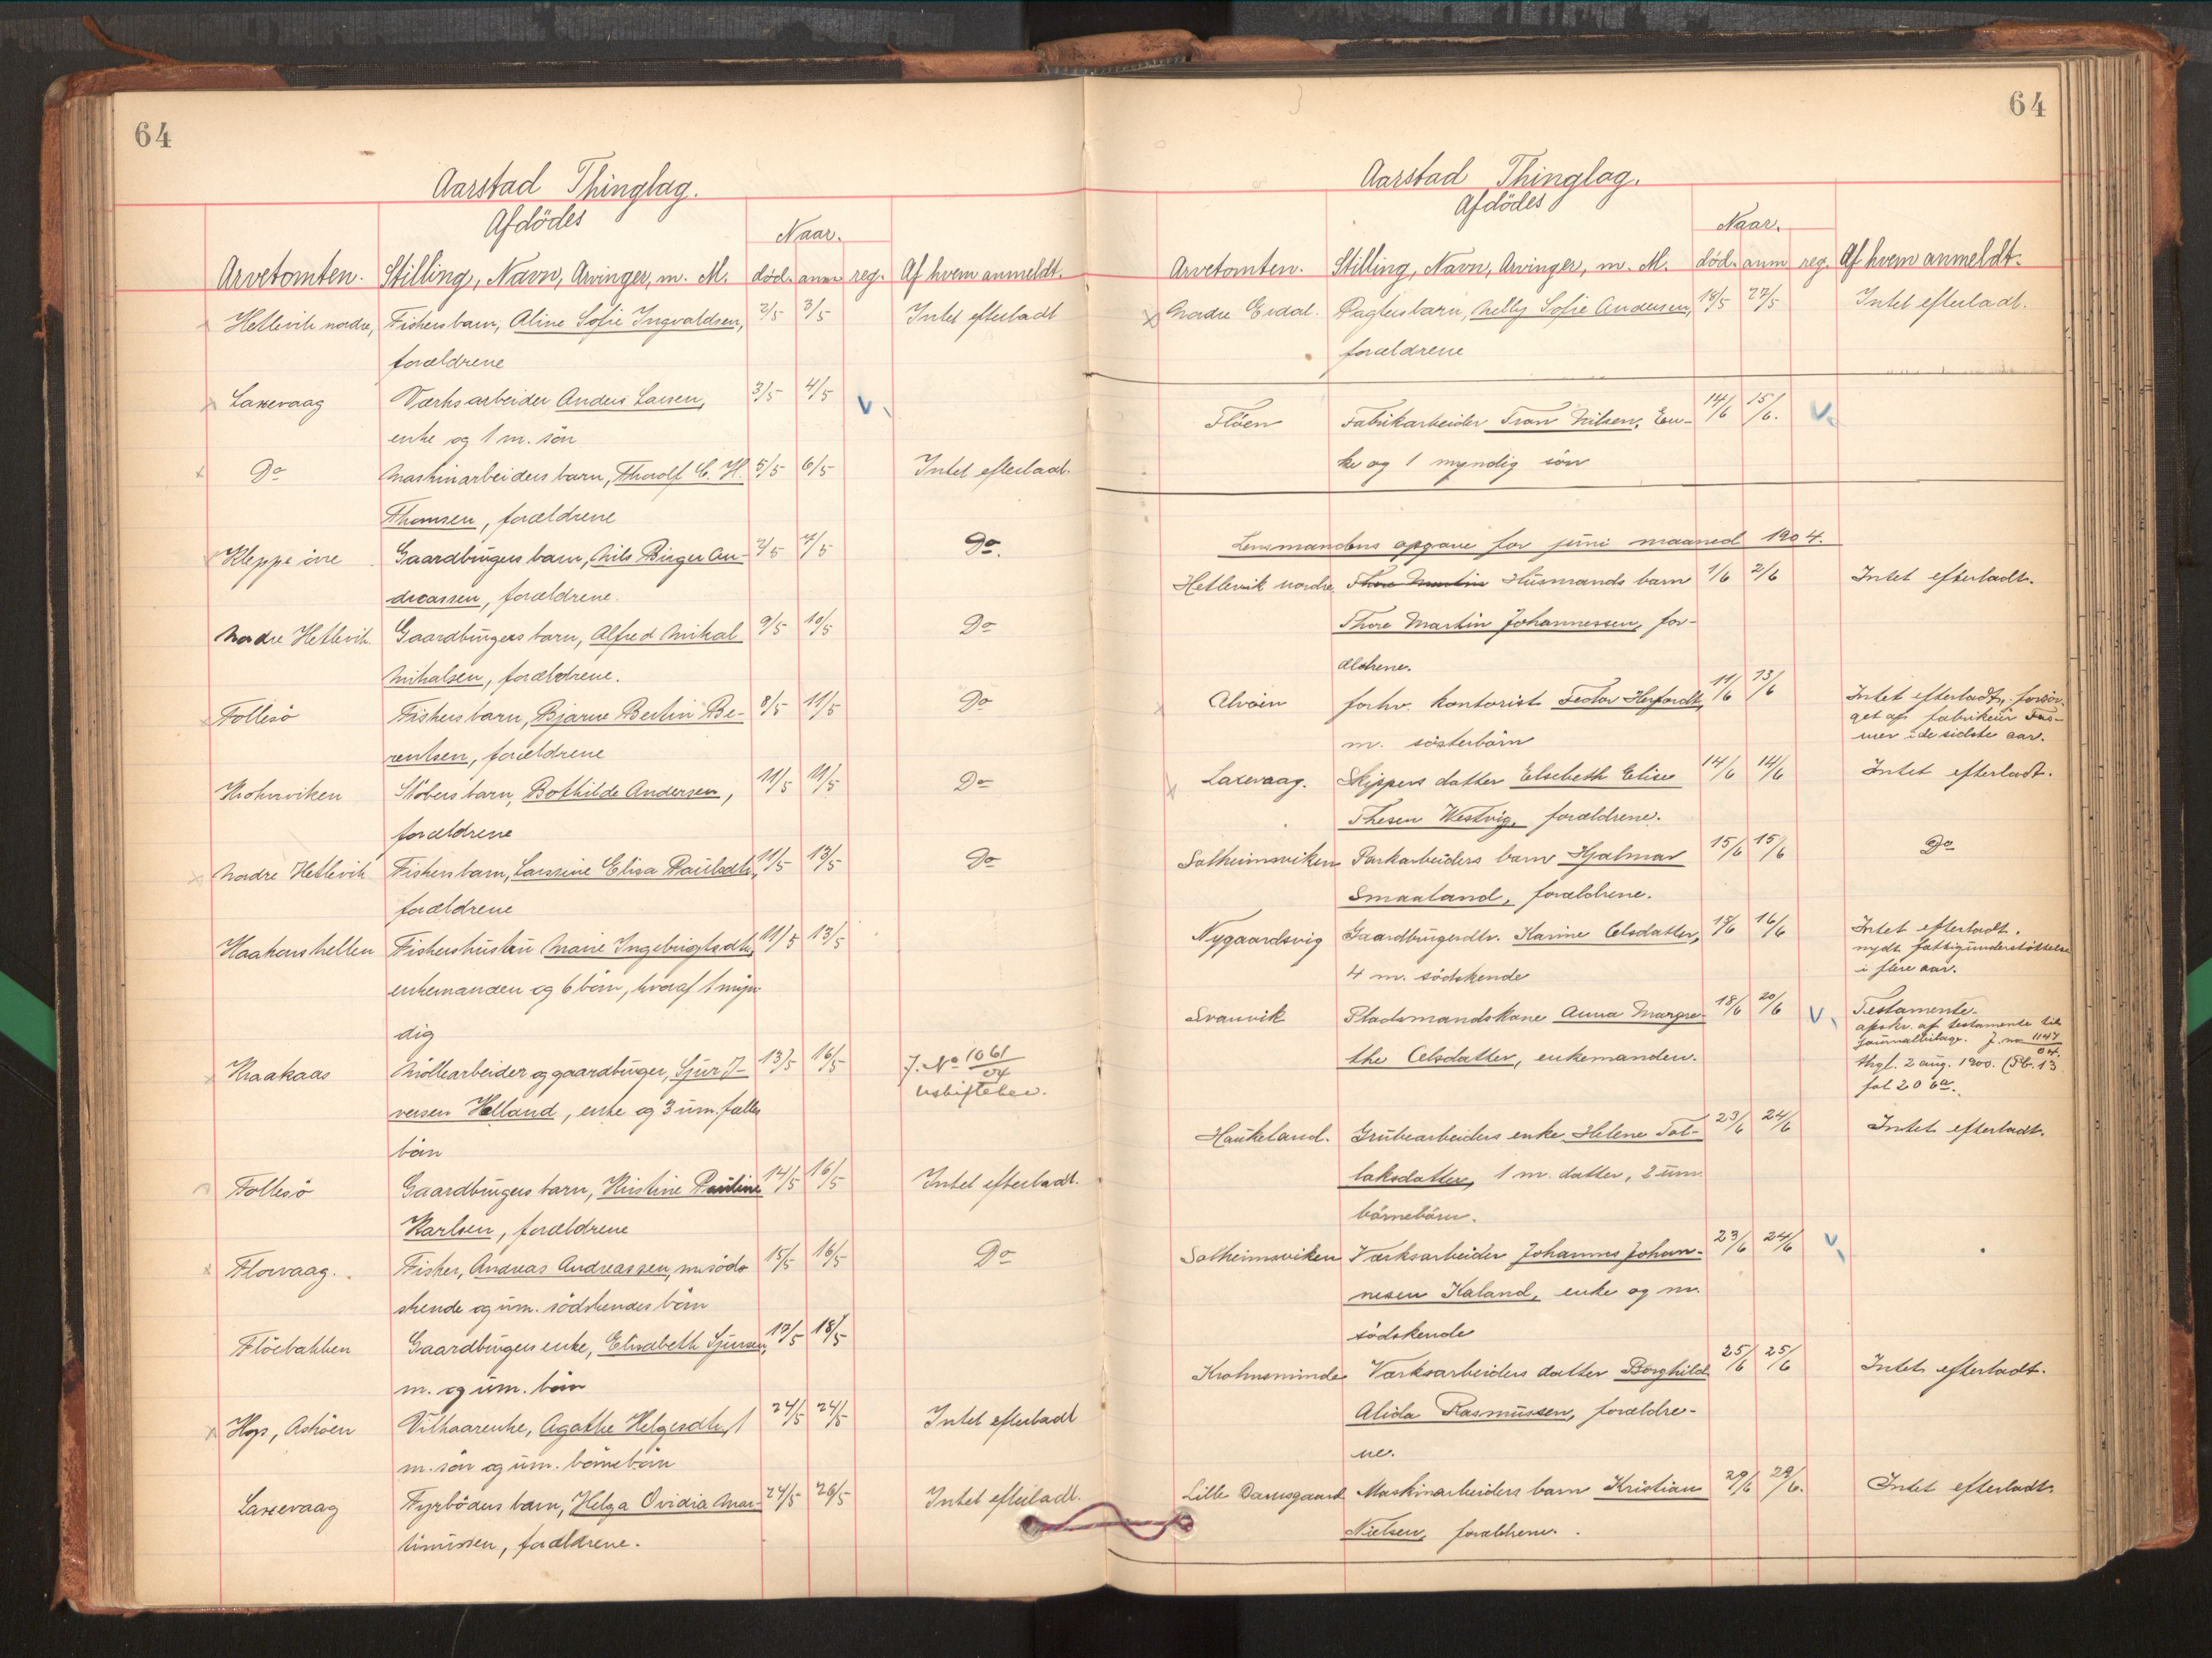 64
Aarstad Thinglag.
Afdödes
Naar.
Arvetomten. Stilling, Navn, Arvinger, m. M. död. anm. reg. Af hvem anmeldt.
Hetlevik nordre, Fiskers barn, Aline Sofie Ingvaldsen, 2/5 3/5 Intet efterladt
forældrene
Laxevaag Værksarbeider Anders Larsen, 3/5 4/5 V.
enke og 1 m. sön
Do Maskinarbeiders barn, Thorolf C. H. 5/5 6/5 Intet efterladt.
Thomsen, forældrene
Kleppe övre Gaardbrugers barn, Nils Birger An- 2/5 7/5 Do.
dreassen, forældrene.
Nordre Hetlevik. Gaardbrugers barn, Alfred Mikal 9/5 10/5 Do
Mikalsen, forældrene.
Follesö Fiskers barn, Bjarne Bertin Be- 8/5 11/5 Do
rentsen, forældrene
Krohnviken Stöbers barn, Bothilde Andersen, 11/5 11/5 Do
forældrene
Nordre Hetlevik Fiskers barn, Larsine Elisa Paulsdtr, 11/5 13/5 Do
forældrene
Haakonshellen Fiskershustru Marie Ingebrigtsdtr, 11/5 13/5
enkemanden og 6 börn, hvoraf 1 myn-
dig
Kraakaas Möllearbeider og gaardbruger, Sjur 13/5 16/5 J. No 1061/04
versen Helland, enke og 3 um. fælles
börn
Follesö Gaardbrugers barn, Kristine Pauline 14/5 16/5 Intet efterladt.
Karlsen, forældrene
Florvaag. Fisker, Andreas Andreassen, m. söds 15/5 16/5 Do
skende og um. södskendes börn
Flöebakken Gaardbrugers enke, Elisabeth Sjursen, 17/5 18/5
m. og um. börn
Hop, Asköen Vilkaarenke, Agathe Helgesdtr, 1 24/5 24/5 Intet efterladt
m. sön og um. börnebörn
Laxevaag Fyrböders barn, Helga Ovidia Mar- 24/5 26/5 Intet efterladt.
tinussen, forældrene.
64
Aarstad Thinglag.
Afdödes
Naar.
Arvetomten. Stilling, Navn, Arvinger, m. M. död. anm reg. Af hvem anmeldt.
Nordre Erdal. Pagters barn, Nelly Sofie Andersen, 18/5 27/5 Intet efterladt.
forældrene
Flöen Fabrikarbeider Nilsen, En- 14/6 15/6. V.
ke og 1 myndig sön
Lensmandens opgave for juni maaned 1904.
Hetlevik nordre. Thore Martin Husmands barn 1/6 2/6 Intet efterladt.
Thore Martin Johannessen, for-
ældrene.
Alvöen forhv. kontorist Fedor Herfordt, 11/6 13/6 Intet efterladt, forsör-
m. sösterbörn get af fabrikeier Fas-
mer i de sidste aar.
Laxevaag. Skippers datter Elsebeth Elise 14/6 14/6 Intet efterladt.
Thesen Westvig, forældrene.
Solheimsviken Parkarbeiders barn Hjalmar 15/6 15/6 Do
Smaaland, forældrene.
Nygaardsvig Gaardbrugerdtr. Karine Olsdatter, 15/6 16/6 Intet efterladt.
4 m. södskende nydt fattigunderstöttelse
i flere aar.
Svanvik Pladsmandskone Anna Margre- 18/6 20/6 V. Testamente.
the Olsdatter, enkemanden. afskr. af testamente til
journalbilage. J. no 1147/04.
thgl. 2 aug. 1900. (Pb. 13
fol 206a.
Haukeland. Grubearbeiders enke Helene Tol- 23/6 24/6 Intet efterladt.
laksdatter, 1 m. datter, 2 um.
börnebörn.
Solheimsviken Værksarbeider Johannes Johan- 23/6 24/6 V.
nesen Kaland, enke og m.
södskende
Krohnsminde Værksarbeiders datter Borghild 25/6 25/6 Intet efterladt.
Alida Rasmussen, forældre-
ne.
Lille Damsgaard Maskinarbeiders barn Kristian 29/6 29/6. Intet efterladt.
Nielsen, forældrene.